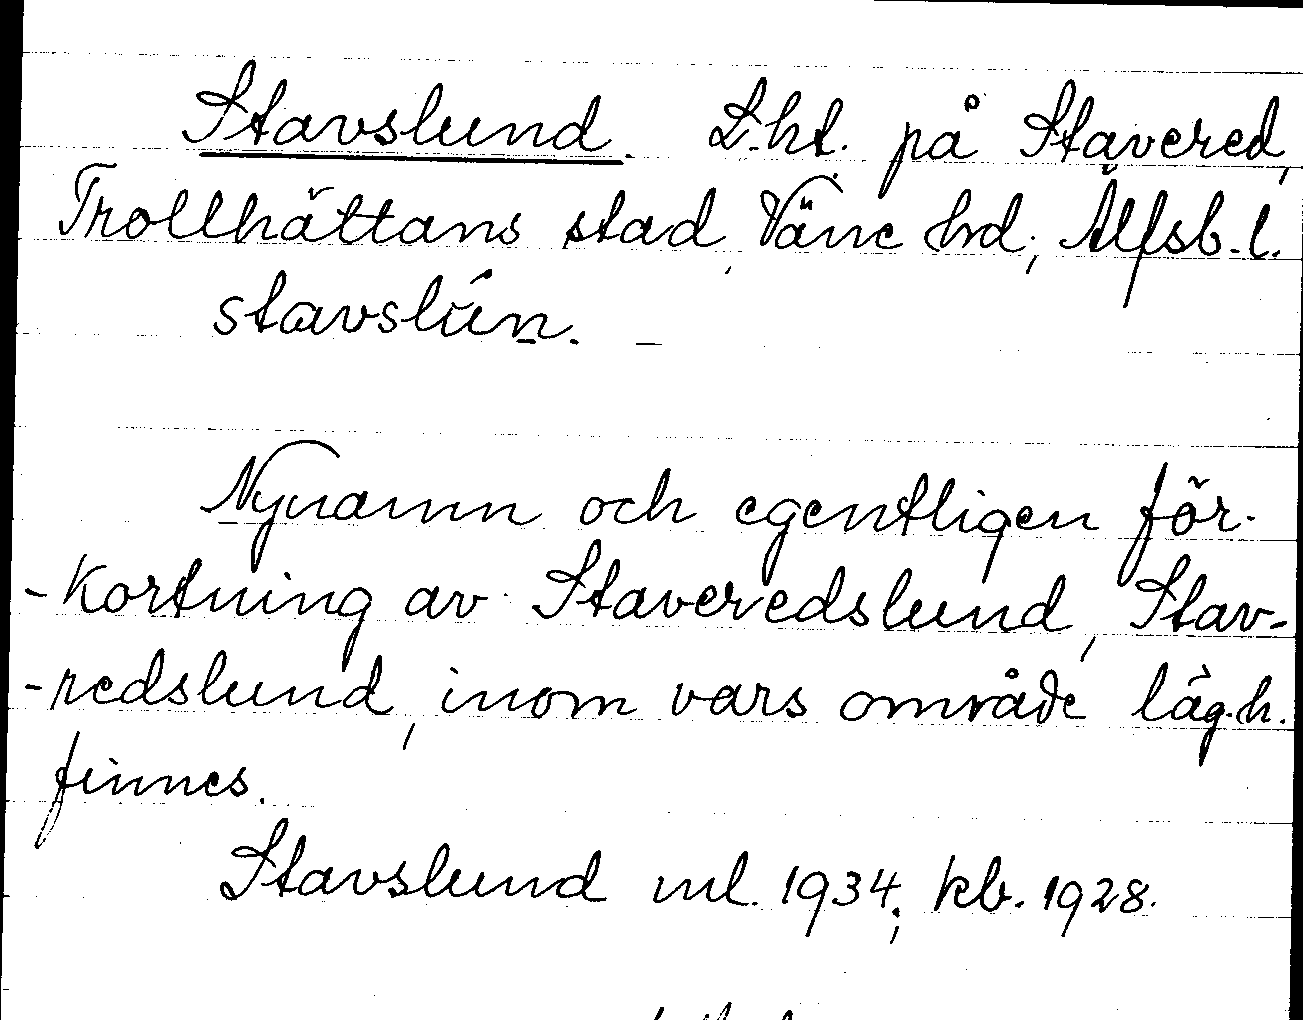 Stavslund. L.ht. på Stavered,
Trollhättans stad, Väne hd; Älfsb.l.
stavslún. –
Nynamn och egentligen för-
-kortning av Staveredslund, Stav-
-redslund, inom vars område läg.h.
finnes.
Stavslund ml. 1934; kb. 1928.